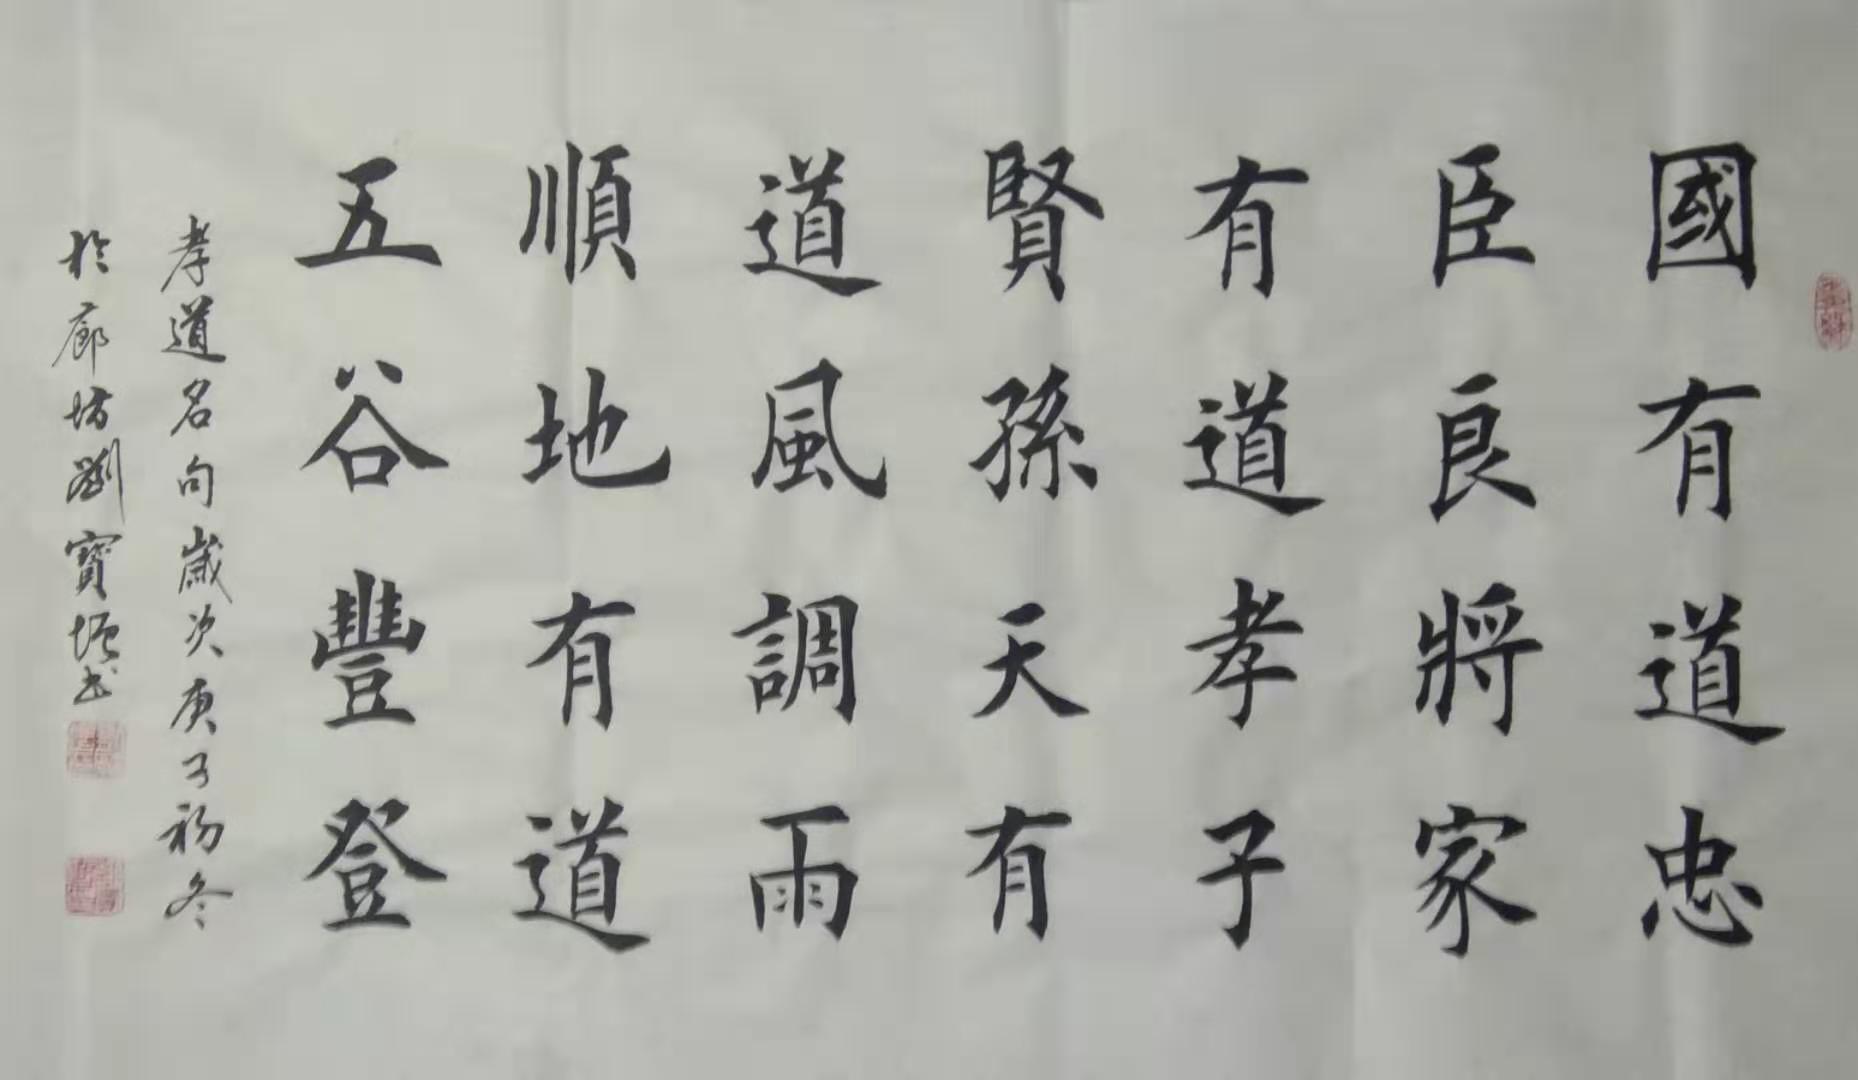 國有道忠
臣良將家
有道孝子
賢孫天有
道風調雨
順地有道
五谷豐登
孝道名句歲次庚子初冬
於廊坊劉寶垣書